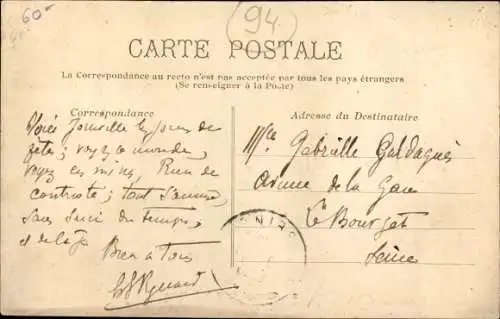 60-
94
CARTE POSTALE
La Correspondance au recto n'est pas acceptée par tous les pays étrangers
(Se renseigner à la Poste)
Correspondance
Voici Joinville les jours de
fêtes; voyez ce monde,
voyez ces mines, Rien de
contraste; tout s'amuse,
sans souci du temps,
et de la
Bien à Tous
Adresse du Destinataire
Mlle Gabrielle
Avenue de la Gare
Le Bourget
Seine